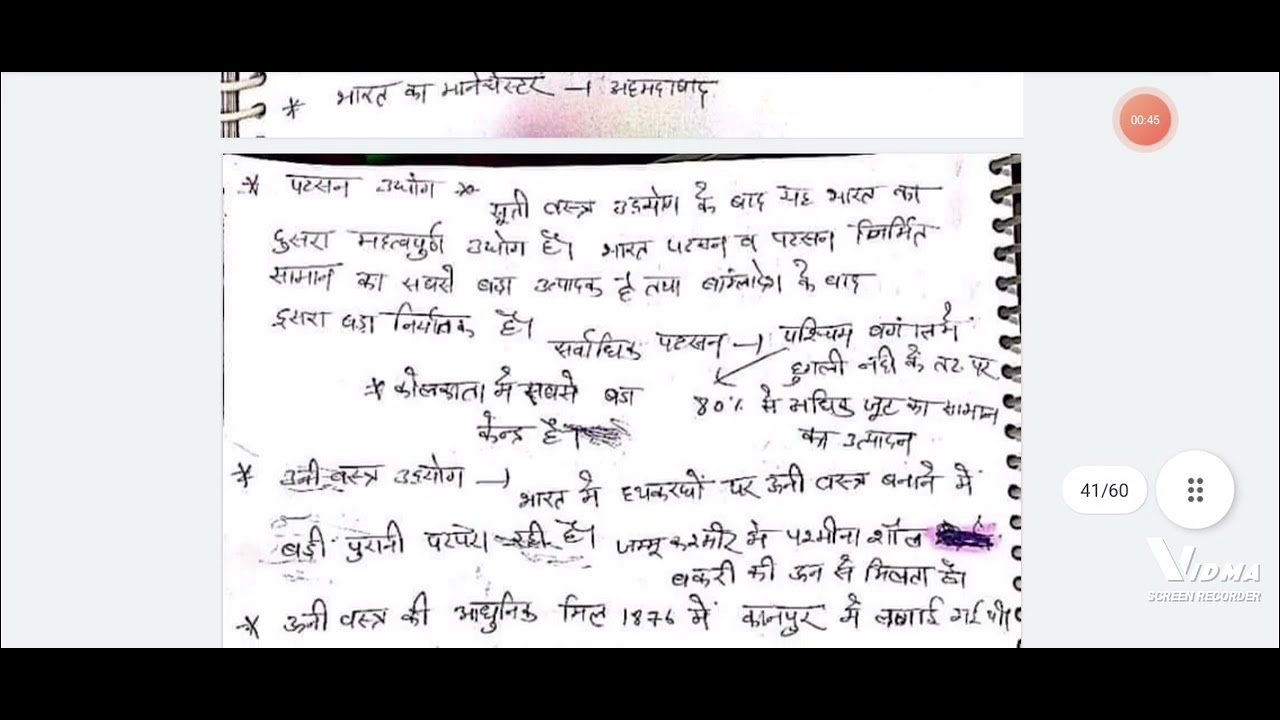 * भारत का मानचेस्टर → अहमदाबाद
00:45
* पटसन उधोग → सूती वस्त्र उद्योग के बाद यह भारत का
दुसरा महत्वपुर्ण उधोग है। भारत पटसन व पटसन निर्मित
सामान का सबसे बडा उत्पादक है तथा बांग्लादेश के बाद
दुसरा बडा निर्यातक है।
सर्वाधिक पटसन → पश्चिम बगांल में
हुगली नदी के तट पर
* कोलकाता में सबसे बडा
80% से अधिक जूट का सामान
केन्द्र है।
का उत्पादन
* उनी वस्त्र उद्योग → भारत में हथकरघों पर ऊनी वस्त्र बनाने में
41/60
बडी पुरानी परंपरा रही है। जम्मू कश्मीर में पश्मीना शॉल
बकरी की ऊन से मिलता है।
* ऊनी वस्त्र की आधुनिक मिल 1876 में कानपुर में लगाई गई थी।
VIDMA
SCREEN RECORDER